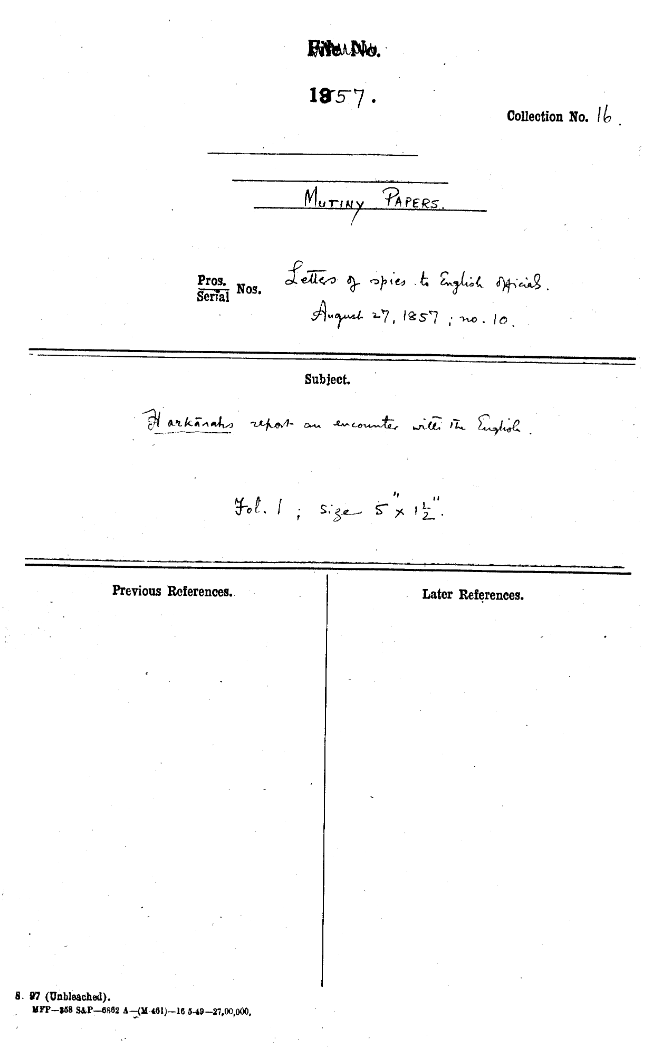 File No.
1857.
Collection No. 16.
MUTINY PAPERS.
Pros. Serial Nos. Letters of spies to English official.
August 27, 1857 ; no. 10.
Subject.
Harkārahs report an encounter with the English.
Fol. 1 ; size 5" x 1½".
Previous References.
Later References.
S. 97 (Unbleached).
MFP—858 S&P—6862 A—(M-461)—16-5-49—27,00,000.